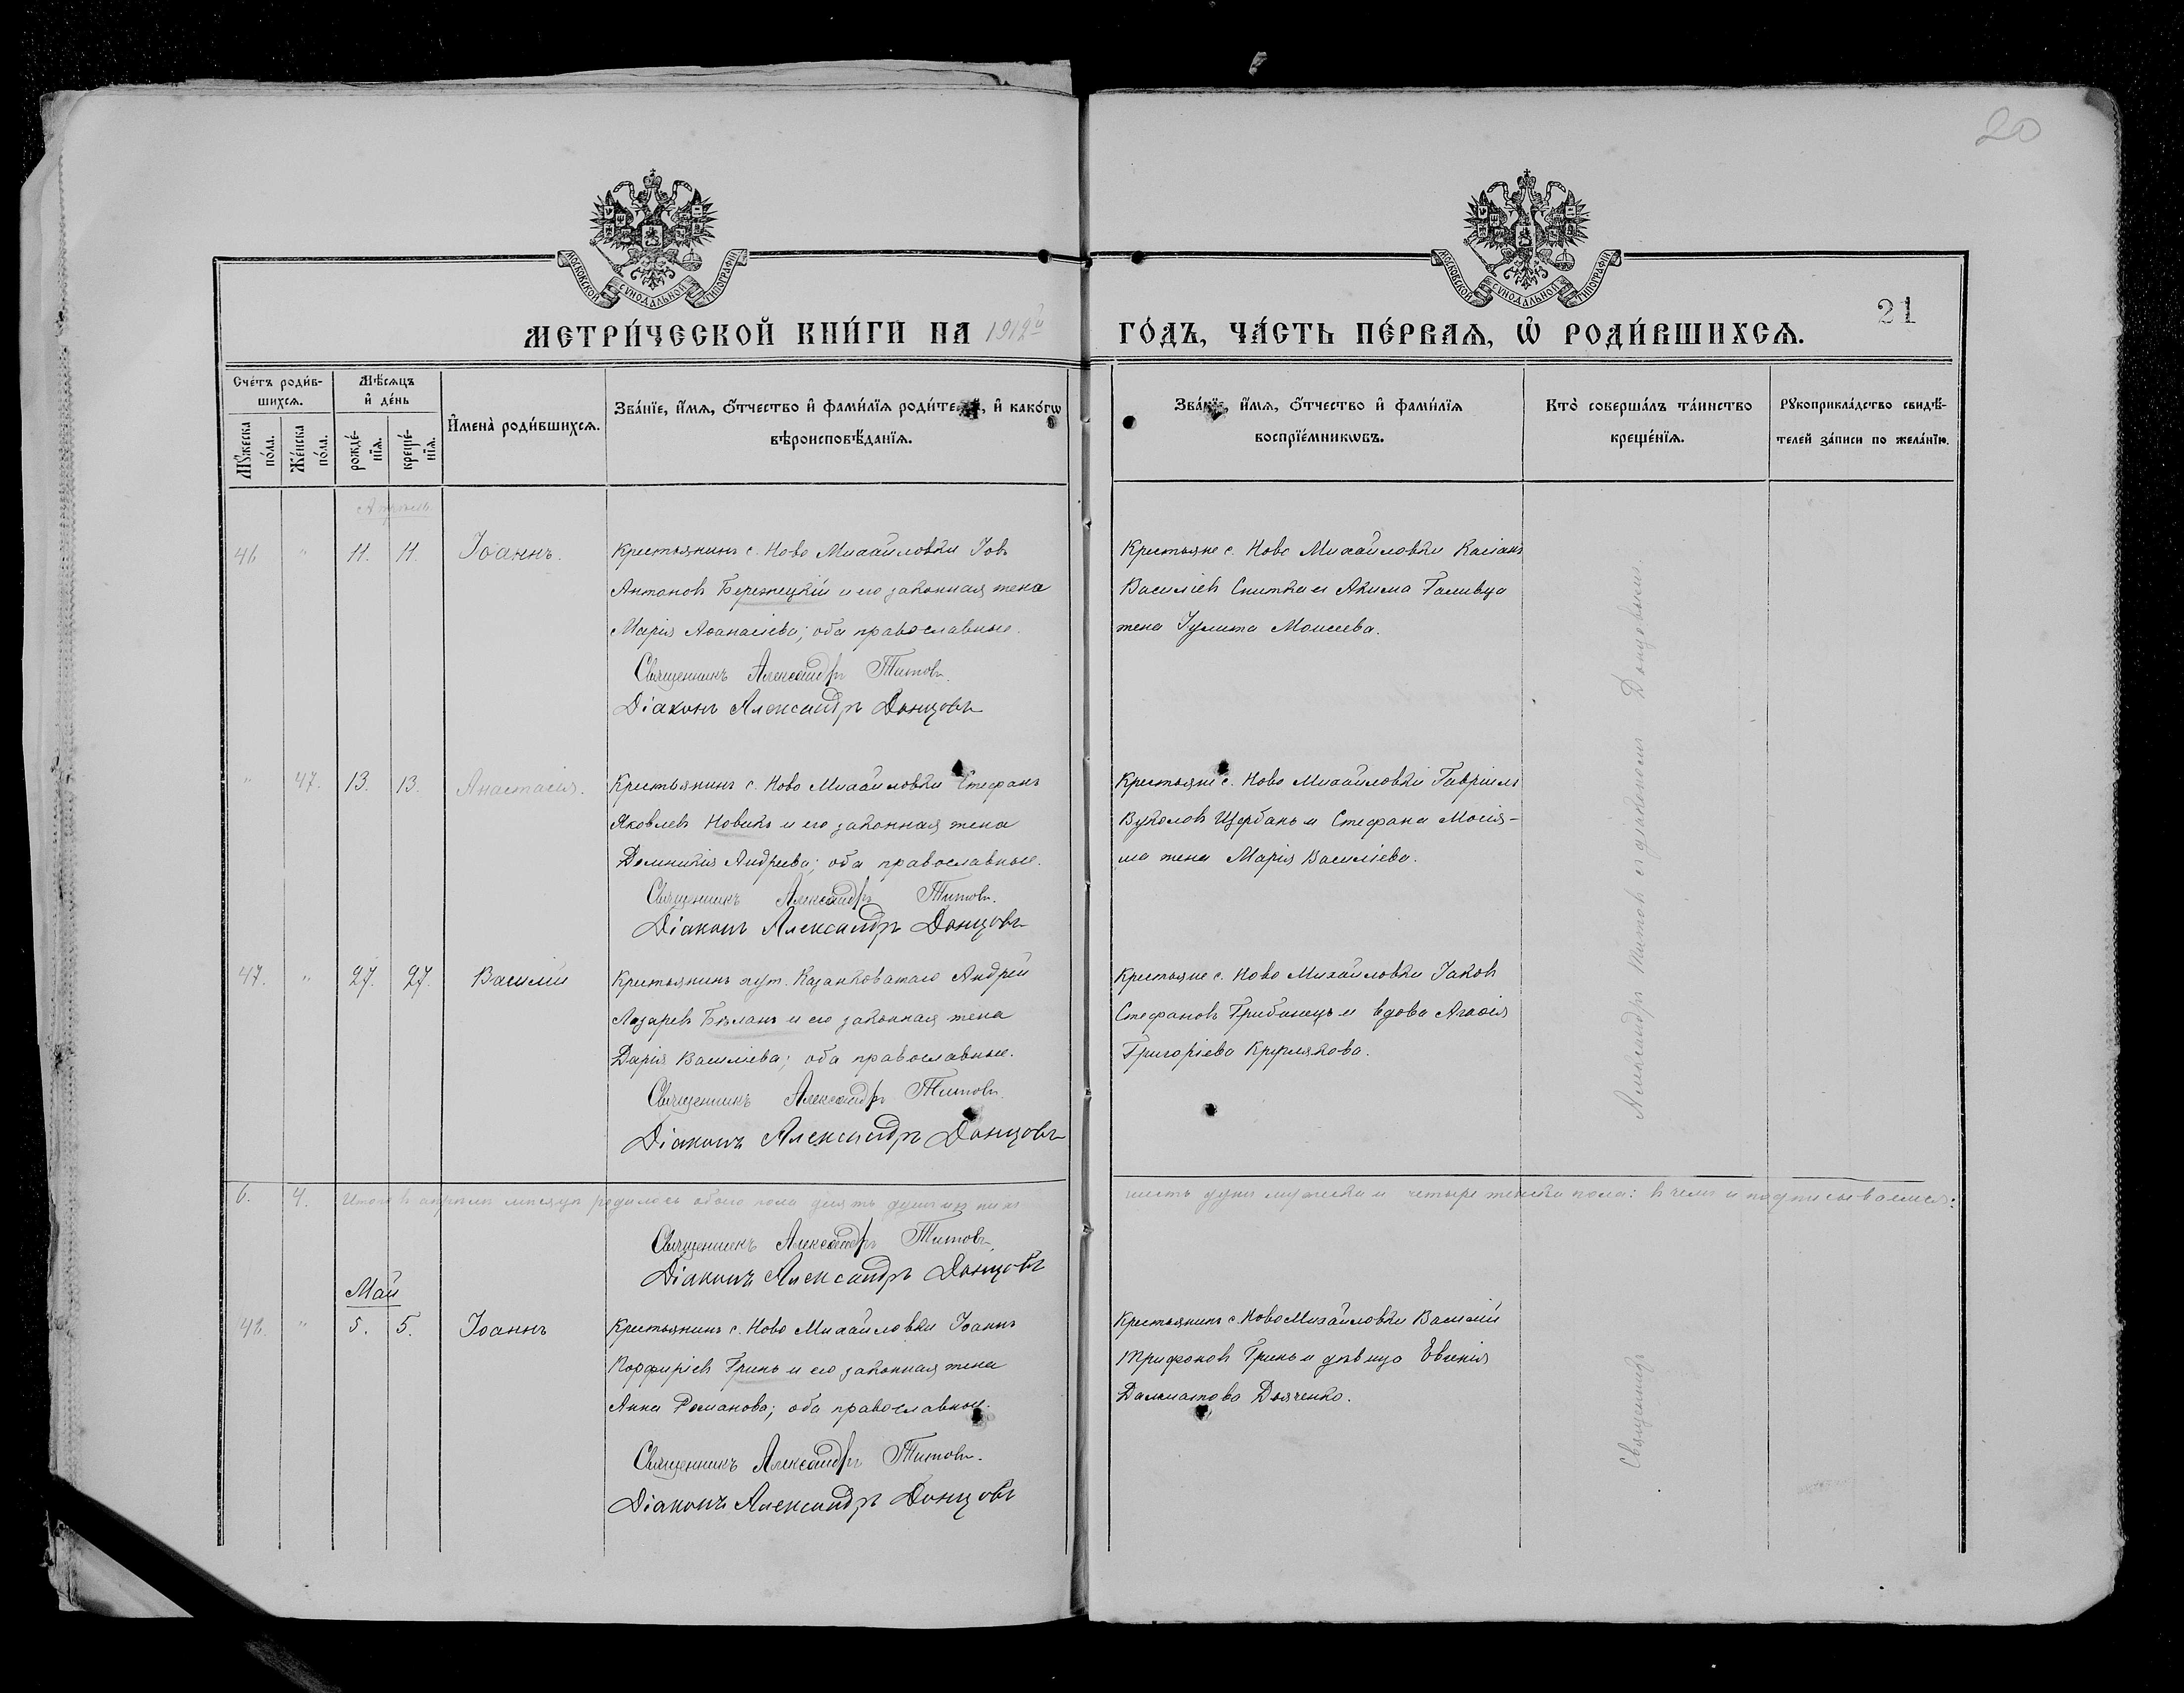 20
МОСКОВСКОЙ СѴНОДАЛЬНОЙ ТИПОГРАФІИ
МОСКОВСКОЙ СѴНОДАЛЬНОЙ ТИПОГРАФІИ
21
МЕТРИ́ЧЕСКОЙ КНИ́ГИ НА 1912й ГО́ДЪ, ЧА́СТЬ ПЕ́РВАѦ, Ѡ҆ РОДИ́ВШИХСѦ.
Сче́тъ роди́в-
шихсѧ.
Мѹ́жеска по́ла.
Же́нска по́ла.
Мѣ́сѧцъ
и҆ де́нь
рожде́-
нїѧ.
креще́-
нїѧ.
И҆мена̀ роди́вшихсѧ.
Зва́нїе, и҆́мѧ, о҆́тчество и҆ фами́лїѧ роди́телей, и҆ како́гѡ
вѣроисповѣ́данїѧ.
Зва́нїе, и҆́мѧ, о҆́тчество и҆ фами́лїѧ
воспрїе́мникѡвъ.
Кто̀ соверша́лъ та́инство
креще́нїѧ.
Рѹкоприкла́дство свидѣ́-
телей за́писи по жела́нїю.
Апрѣль
46 " 11. 11. Іоаннъ.
Крестьянинъ с. Ново Михайловки Іовъ
Антоновъ Бережецкій и его законная жена
Марія Аѳанасіева; оба православные.
Священникъ Александръ Титовъ.
Діаконъ Александръ Донцовъ
Крестьяне с. Ново Михайловки Касіанъ
Василіевъ Снитка и Акима
жена Іулита Моисеева.
" 47. 13. 13. Анастасія.
Крестьянинъ с. Ново Михайловки Стефанъ
Яковлевъ Новикъ и его законная жена
Домникія Андреева; оба православные.
Священникъ Александръ Титовъ.
Діаконъ Александръ Донцовъ
Крестьяне с. Ново Михайловки Гавріилъ
Вуколовъ Щербань и Стефана
жена Марія Василіева.
47. " 27. 27. Василій
Крестьянинъ хут. Казанковатаго Андрей
Лазаревъ Бѣланъ и его законная жена
Дарія Василіева; оба православные.
Священникъ Александръ Титовъ.
Діаконъ Александръ Донцовъ
Крестьяне с. Ново Михайловки Іаковъ
Стефановъ Грибинецъ и вдова Агаѳія
Григоріева Круплякова.
6. 4. Итого въ апрѣлѣ мѣсяцѣ родилось обоего пола десять душъ изъ нихъ шесть душъ мужеска и четыре женска пола: в чемъ и подписываемся:
Священникъ Александръ Титовъ
Діаконъ Александръ Донцовъ
Май
48. " 5. 5. Іоаннъ
Крестьянинъ с. Ново Михайловки Іоаннъ
Порфиріевъ Гринь и его законная жена
Анна Романова; оба православные.
Священникъ Александръ Титовъ.
Діаконъ Александръ Донцовъ
Крестьянинъ с. Ново Михайловки Василій
Трифоновъ Гринь и дѣвица Евгенія
Далматова Дяченко.
Священникъ Александръ Титовъ съ діакономъ Донцовымъ.